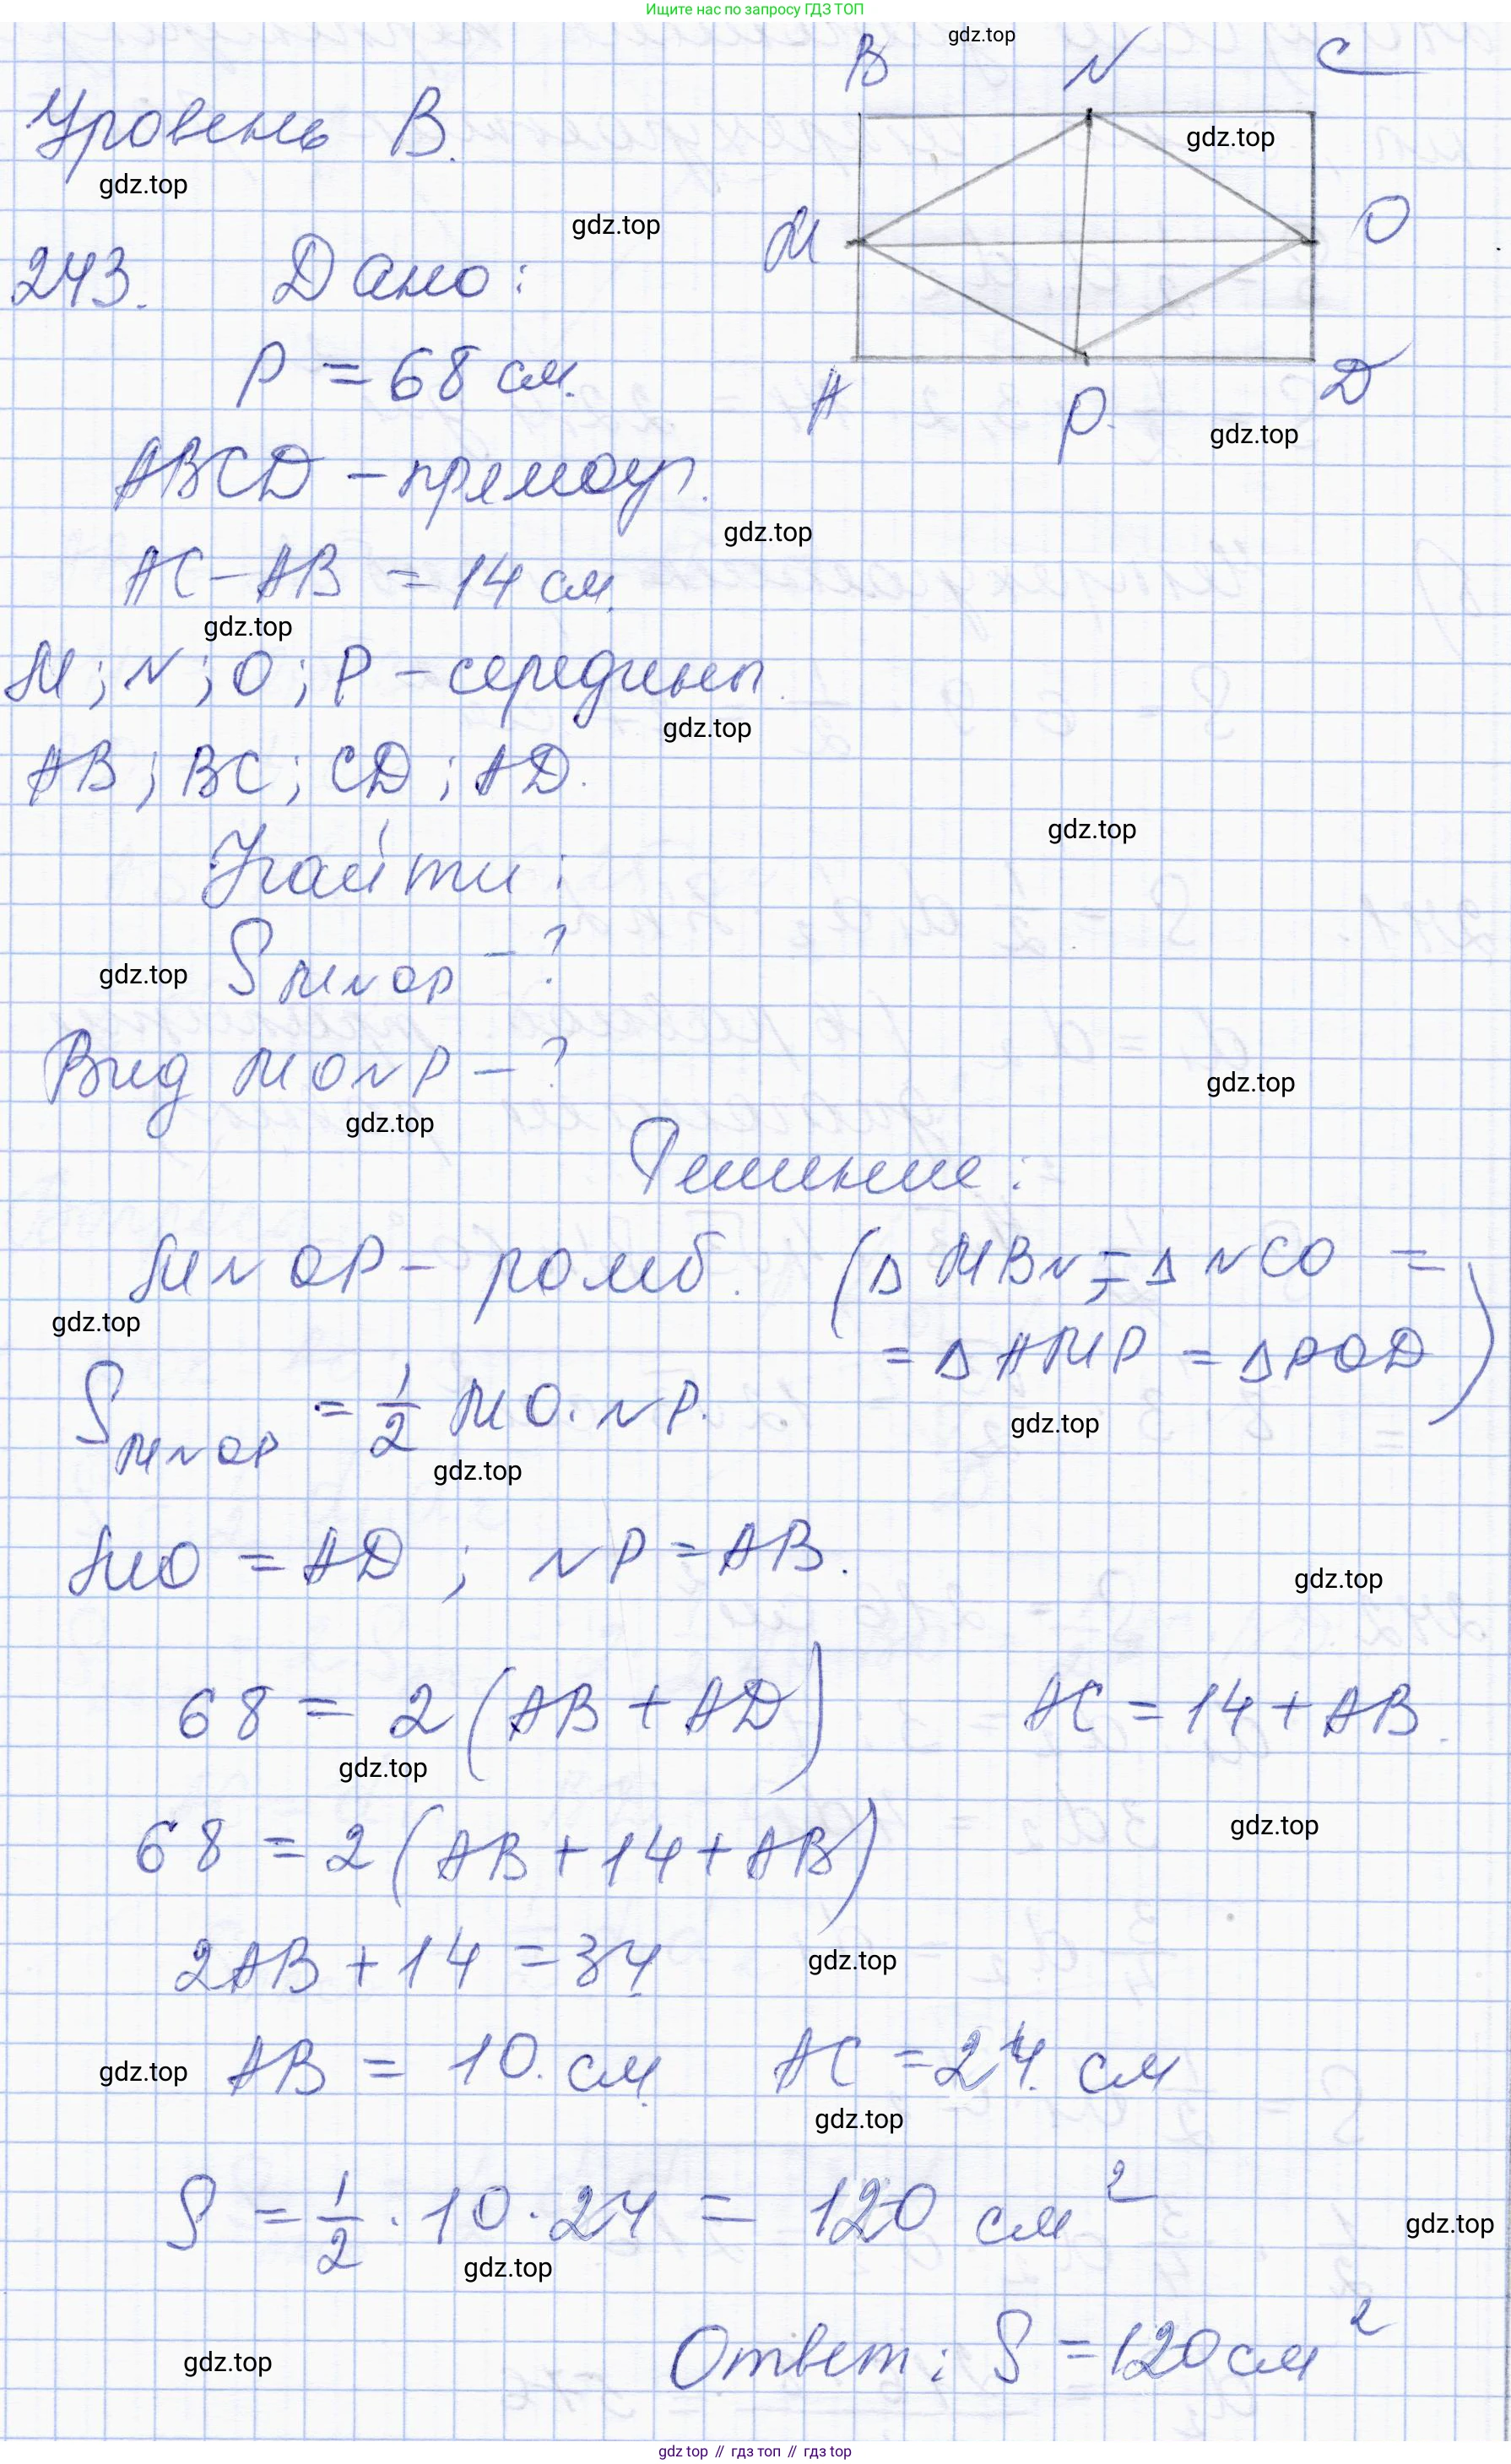 Ищите нас по запросу ГДЗ ТОП
B N C
gdz.top
Уровень В.
gdz.top
gdz.top
gdz.top
M O
243. Дано:
P = 68 см.
A P. D
gdz.top
ABCD – прямоуг.
gdz.top
AC – AB = 14 см.
gdz.top
M; N; O; P – середины
gdz.top
AB; BC; CD; AD.
gdz.top
Найти:
gdz.top
S MNOP – ?
Вид MONP – ?
gdz.top
gdz.top
Решение:
MNOP – ромб. (Δ MBN = Δ NCO =
gdz.top
= Δ AMP = Δ POD)
S MNOP = 1/2 MO · NP.
gdz.top
gdz.top
MO = AD ; NP = AB.
gdz.top
68 = 2 (AB + AD) AC = 14 + AB.
gdz.top
gdz.top
68 = 2 (AB + 14 + AB)
2AB + 14 = 34
gdz.top
gdz.top
AB = 10. см AC = 24. см
gdz.top
S = 1/2 · 10 · 24 = 120 см²
gdz.top
gdz.top
Ответ: S = 120 см²
gdz.top
gdz top // гдз топ // гдз top